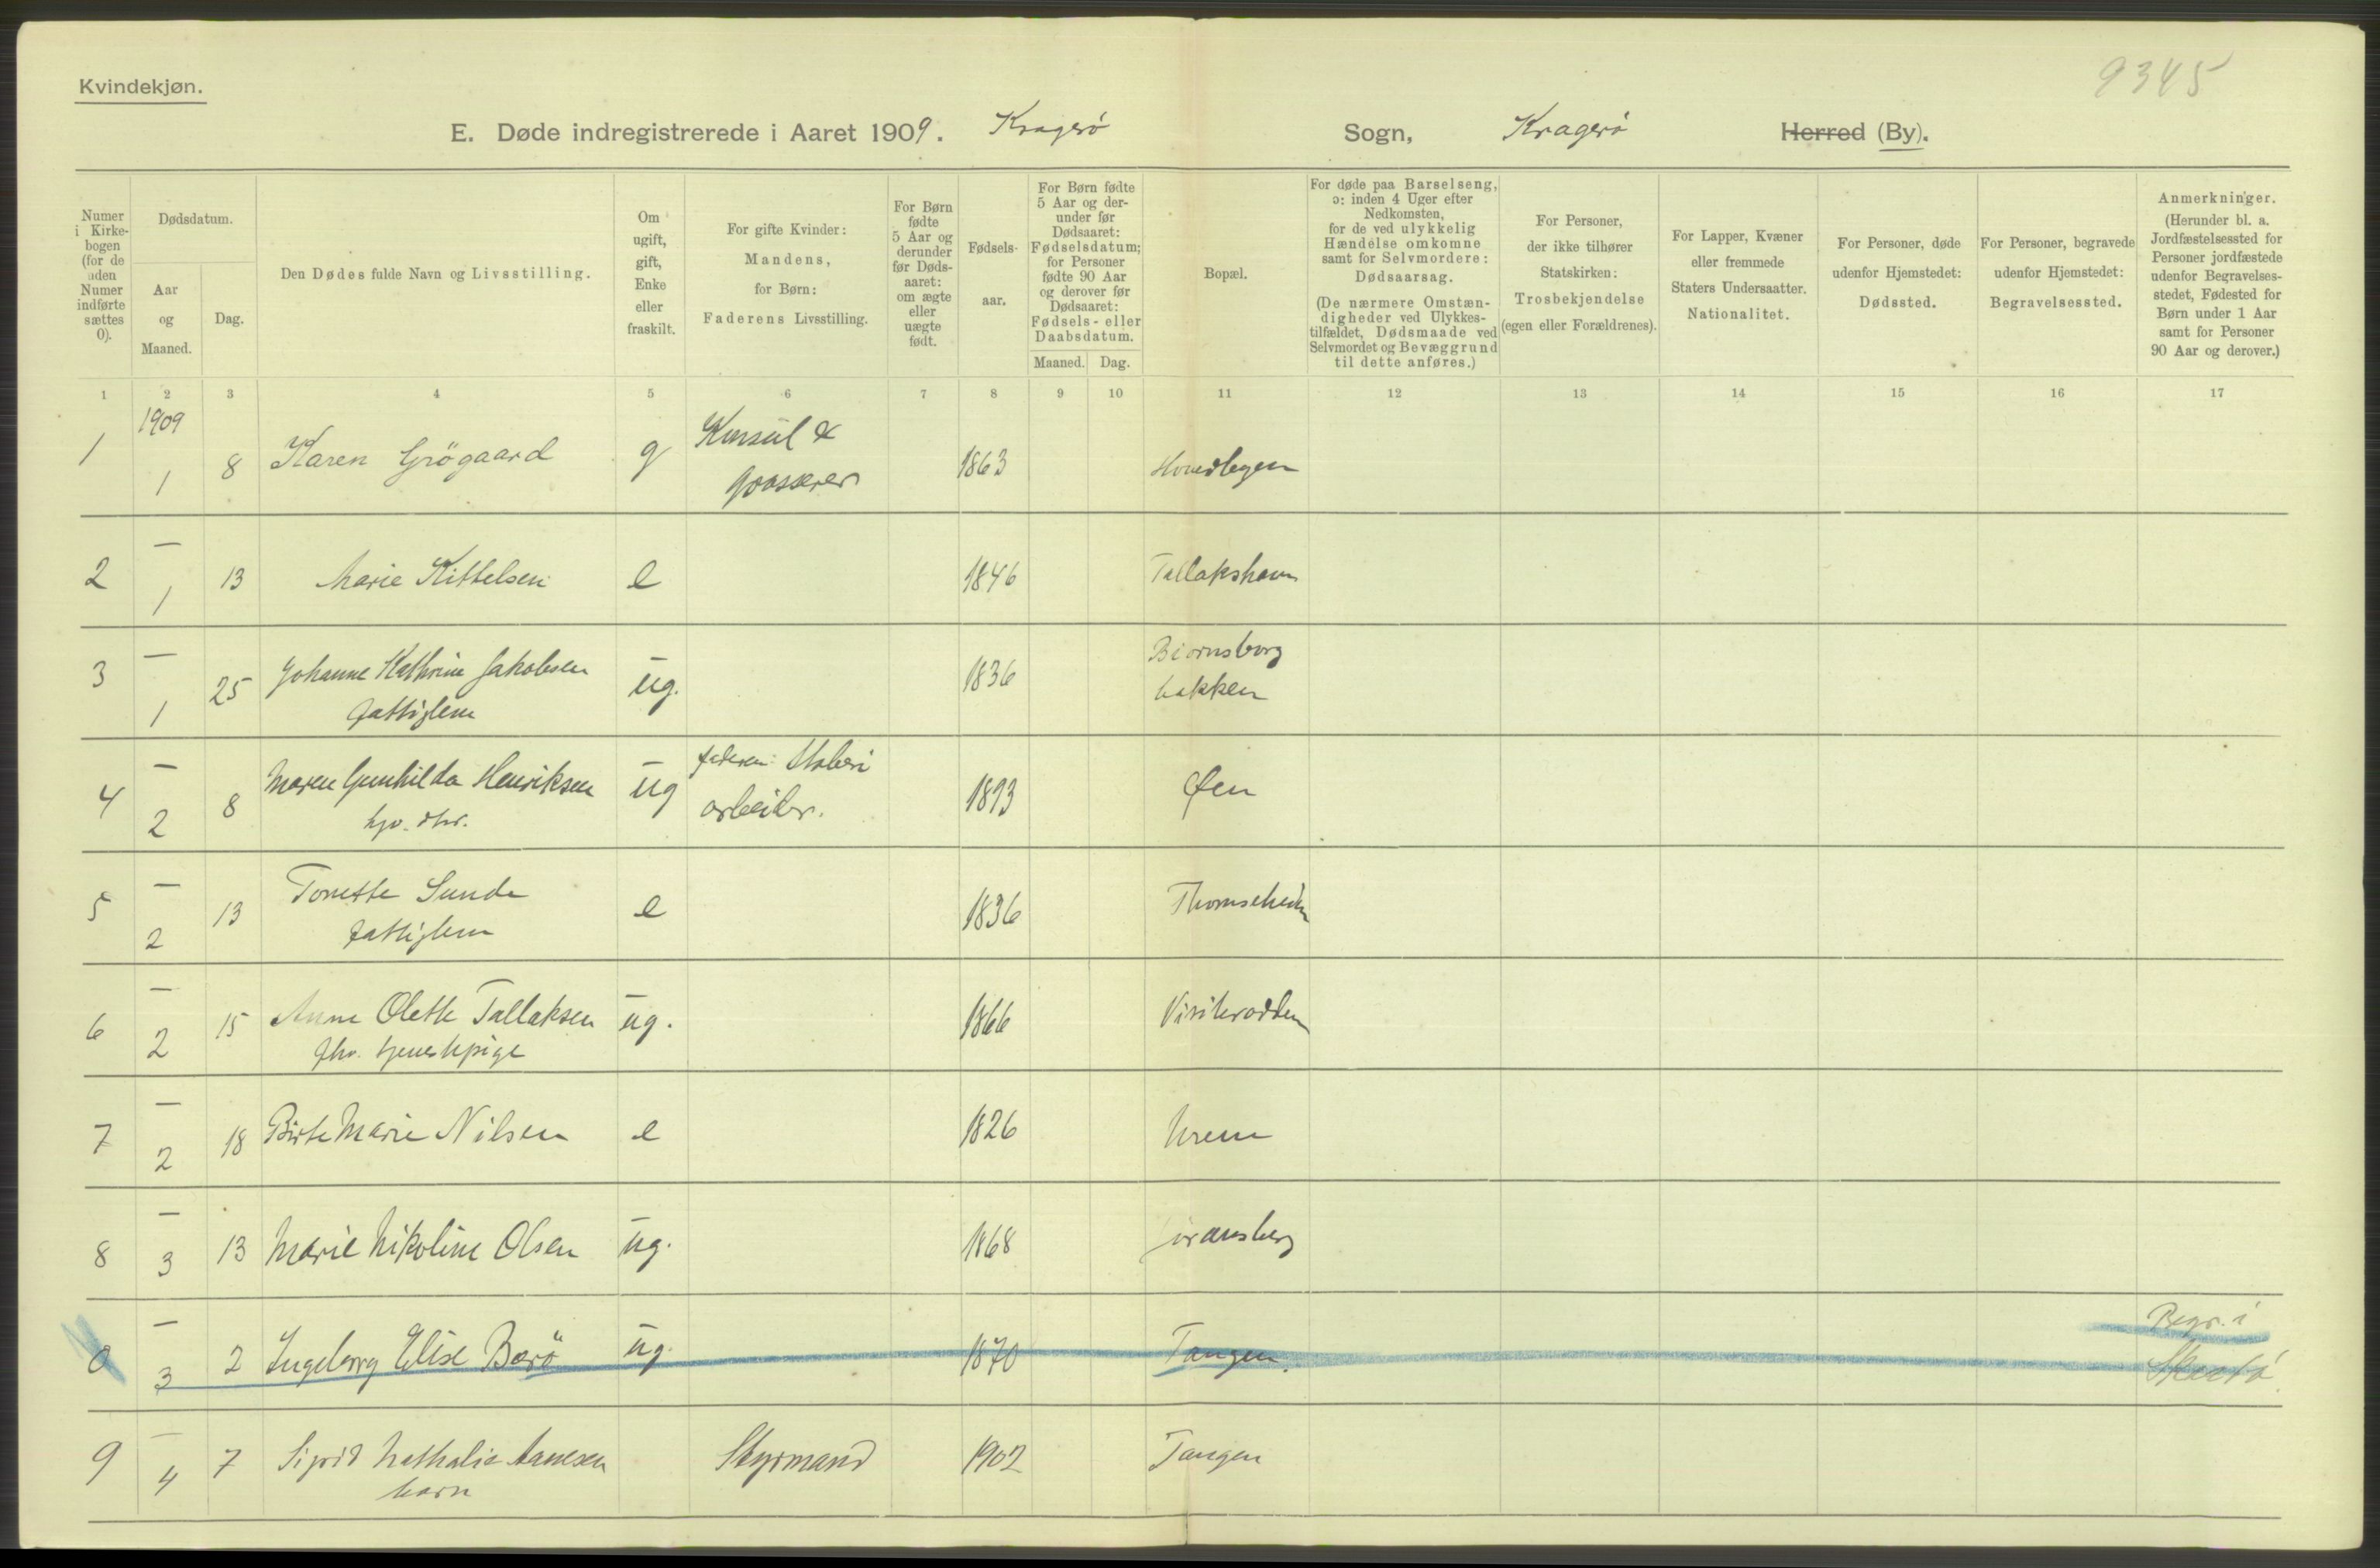 9345
Kvindekjøn.
E. Døde indregistrerede i Aaret 1909. Kragerö Sogn, Kragerö Herred (By).
Numer i Kirke-bogen (for de uden Numer indførte sættes 0).
Dødsdatum.
Aar og Maaned.
Dag.
Den Dødes fulde Navn og Livsstilling.
Om ugift, gift, Enke eller fraskilt.
For gifte Kvinder: Mandens, for Børn: Faderens Livsstilling.
For Børn fødte 5 Aar og derunder før Døds-aaret: om ægte eller uægte født.
Fødsels-aar.
For Børn fødte 5 Aar og der-under før Dødsaaret: Fødselsdatum; for Personer fødte 90 Aar og derover før Dødsaaret: Fødsels- eller Daabsdatum.
Maaned. Dag.
Bopæl.
For døde paa Barselseng, ɔ: inden 4 Uger efter Nedkomsten, for de ved ulykkelig Hændelse omkomne samt for Selvmordere: Dødsaarsag.
(De nærmere Omstæn-digheder ved Ulykkes-tilfældet, Dødsmaade ved Selvmordet og Bevæggrund til dette anføres.)
For Personer, der ikke tilhører Statskirken: Trosbekjendelse (egen eller Forældrenes).
For Lapper, Kvæner eller fremmede Staters Undersaatter. Nationalitet.
For Personer, døde udenfor Hjemstedet: Dødssted.
For Personer, begravede udenfor Hjemstedet: Begravelsessted.
Anmerkninger. (Herunder bl. a. Jordfæstelsessted for Personer jordfæstede udenfor Begravelses-stedet, Fødested for Børn under 1 Aar samt for Personer 90 Aar og derover.)
1 2 3 4 5 6 7 8 9 10 11 12 13 14 15 16 17
1909
1 1 8 Karen Grögaard g Konsul & 1863
grosserer
2 – 1 13 Marie Kittelsen e 1846 Tallakshavn
3 – 1 25 Johanne Kathrine Jakobsen ug. 1836 Biornsborg
fattiglem bakken
4 – 2 8 Maren Gunhilda Henriksen ug faderen: 1893 Øen
hjv. dtr. arbeider.
5 – 2 13 Tonette Sunde e 1836
fattiglem
6 – 2 15 Anne Olette Tallaksen ug. 1866
fhv. tjenestepige
7 – 2 18 Birte Marie Nilsen e 1826 Uren
8 – 3 13 Marie Nikoline Olsen ug. 1868
0 – 3 2 Ingeborg Elise Barö ug. 1870 Tangen. Begr. i
Skaatö
9 – 4 7 Sigrid Nathalie Aanesen Styrmand 1902 Tangen
barn